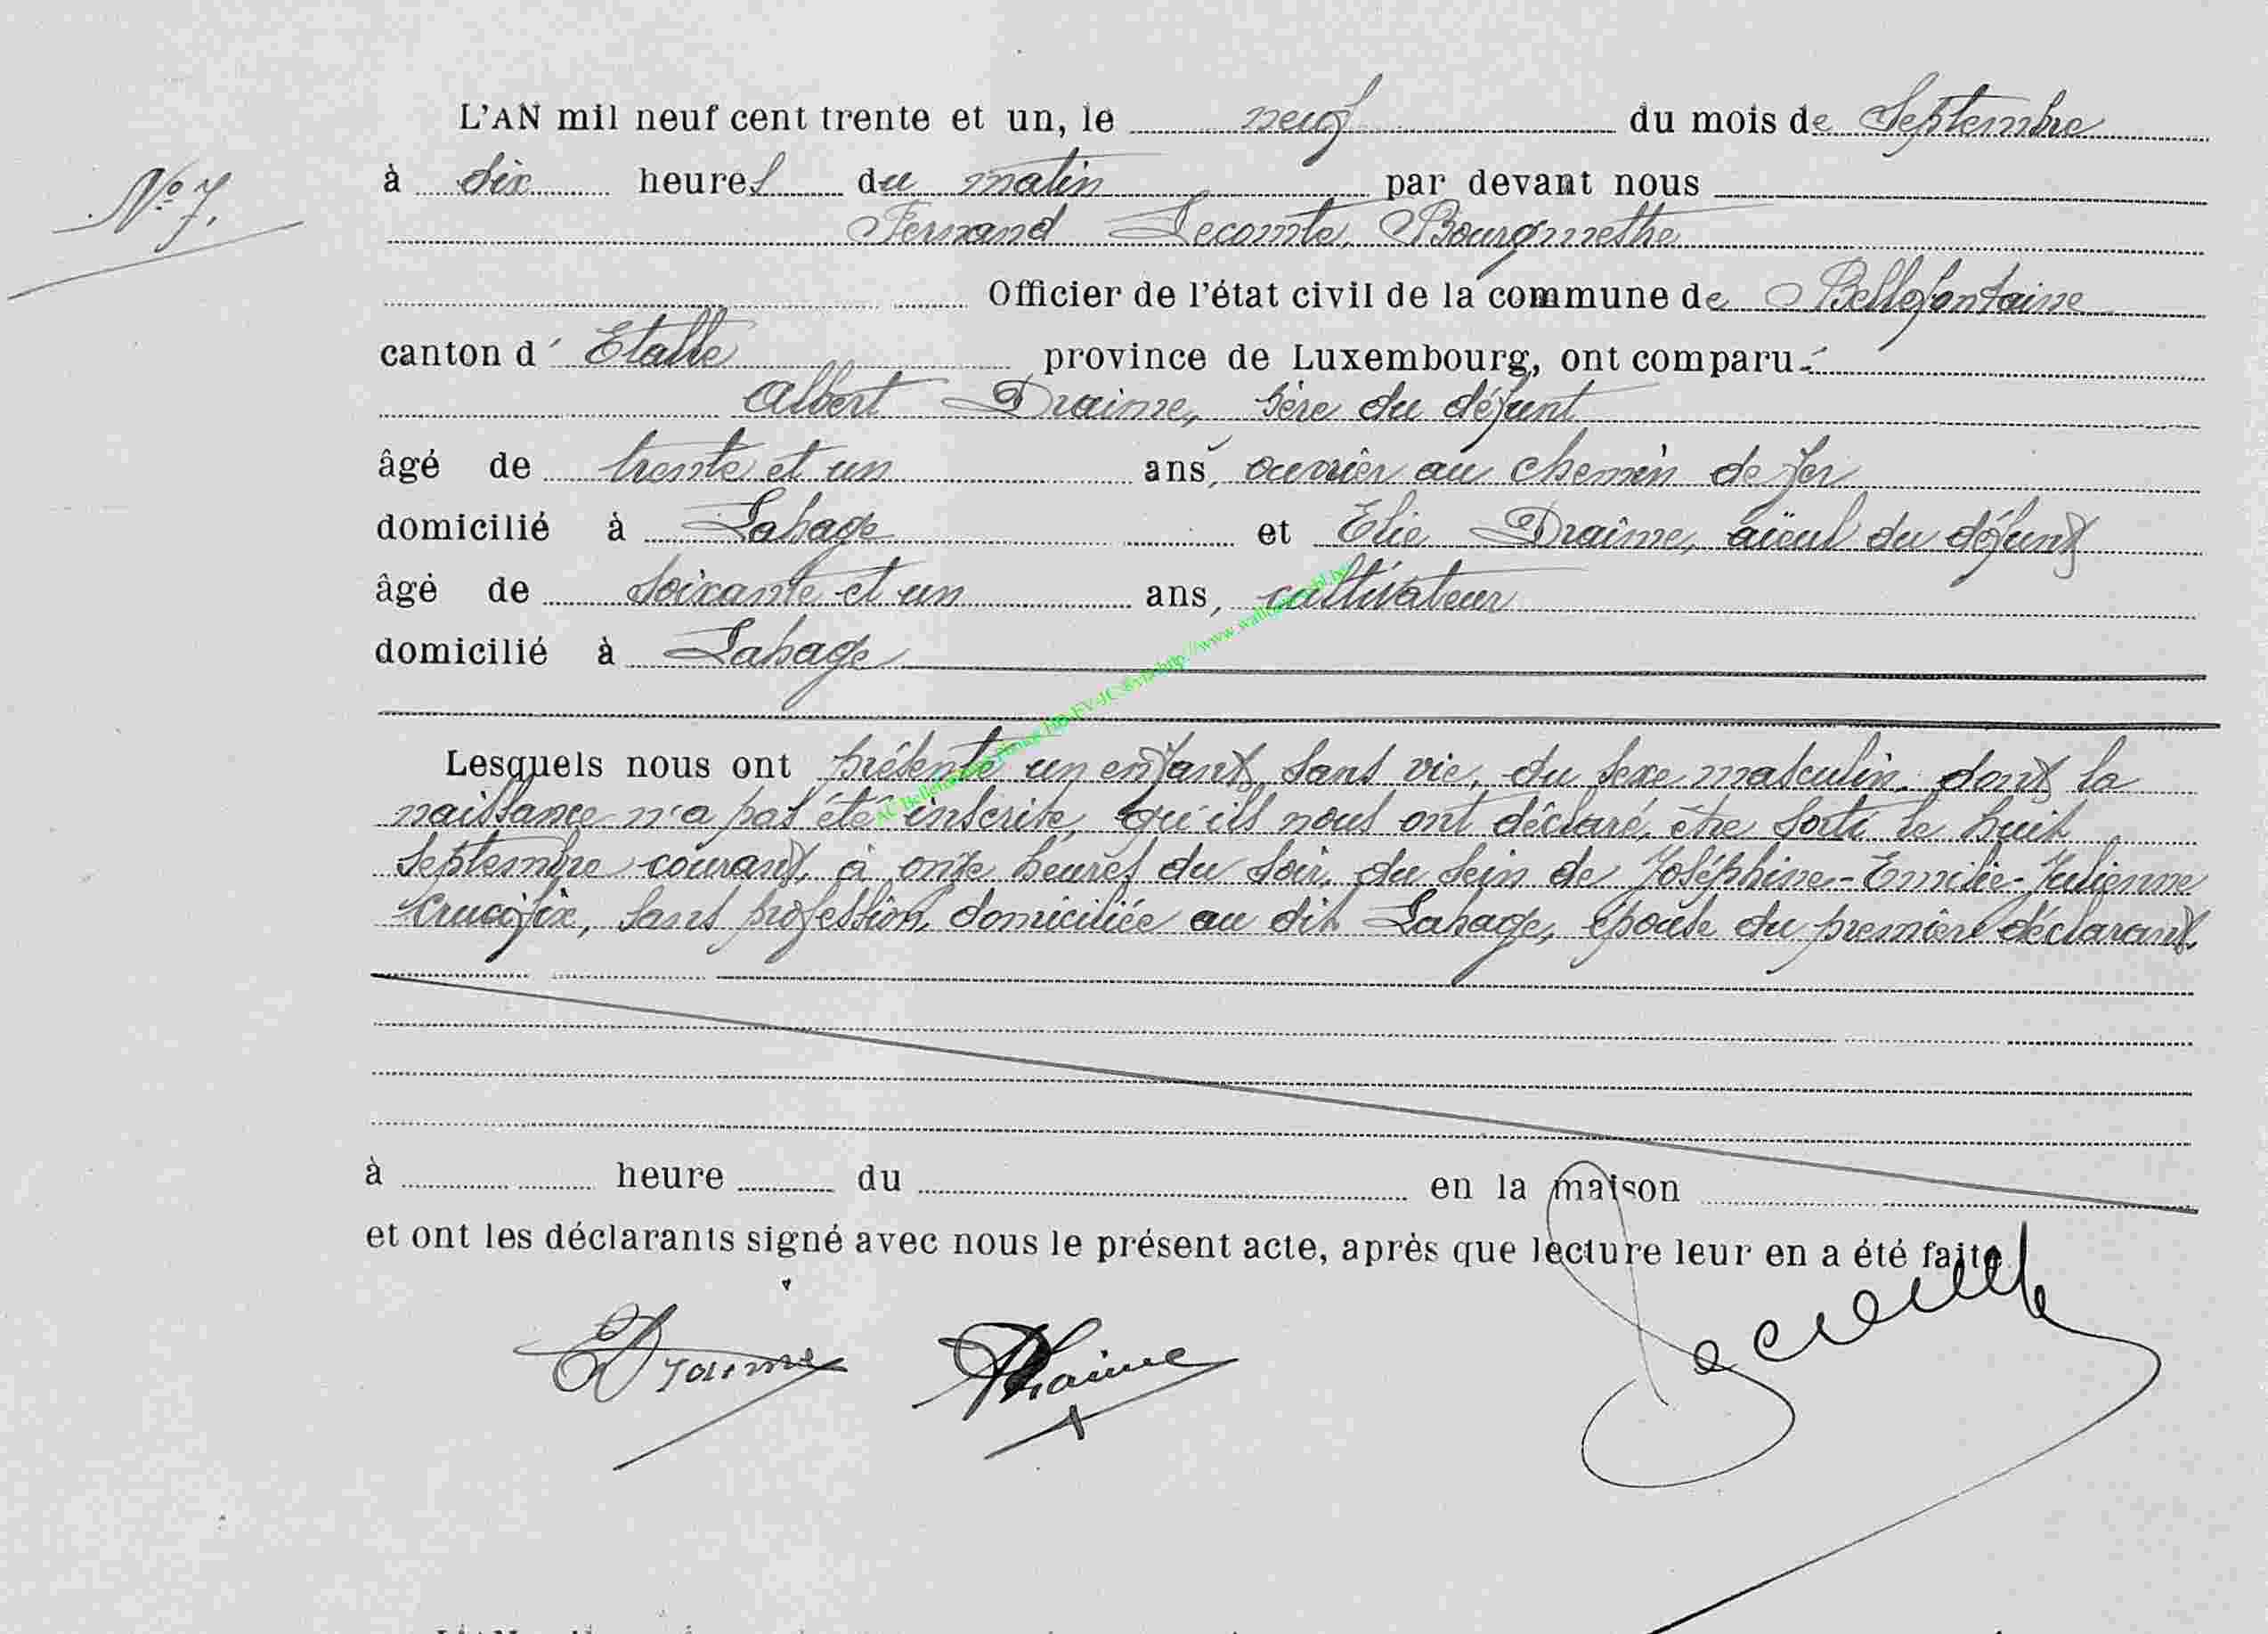 L'AN mil neuf cent trente et un, le neuf du mois de Septembre
N° 7.
à dix heures du matin par devant nous
Fernand Lecomte, Bourgmestre
Officier de l'état civil de la commune de Bellefontaine
canton d' Etalle province de Luxembourg, ont comparu
Albert Draime, père du défunt
âgé de trente et un ans, ouvrier au chemin de fer
domicilié à Lahage et Elie Draime, aïeul du défunt
âgé de soixante et un ans, cultivateur
domicilié à Lahage
Lesquels nous ont présenté un enfant sans vie, du sexe masculin, dont la
naissance n'a pas été inscrite, qu'ils nous ont déclaré être sorti le huit
septembre courant, à onze heures du soir, du sein de Joséphine-Emilie-Julienne
Crucifix, sans profession, domiciliée au dit Lahage, épouse du premier déclarant.
à heure du en la maison
et ont les déclarants signé avec nous le présent acte, après que lecture leur en a été faite
EDraime ADraime Lecomte